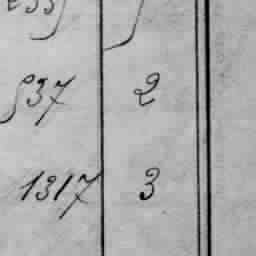 537 2
1317 3